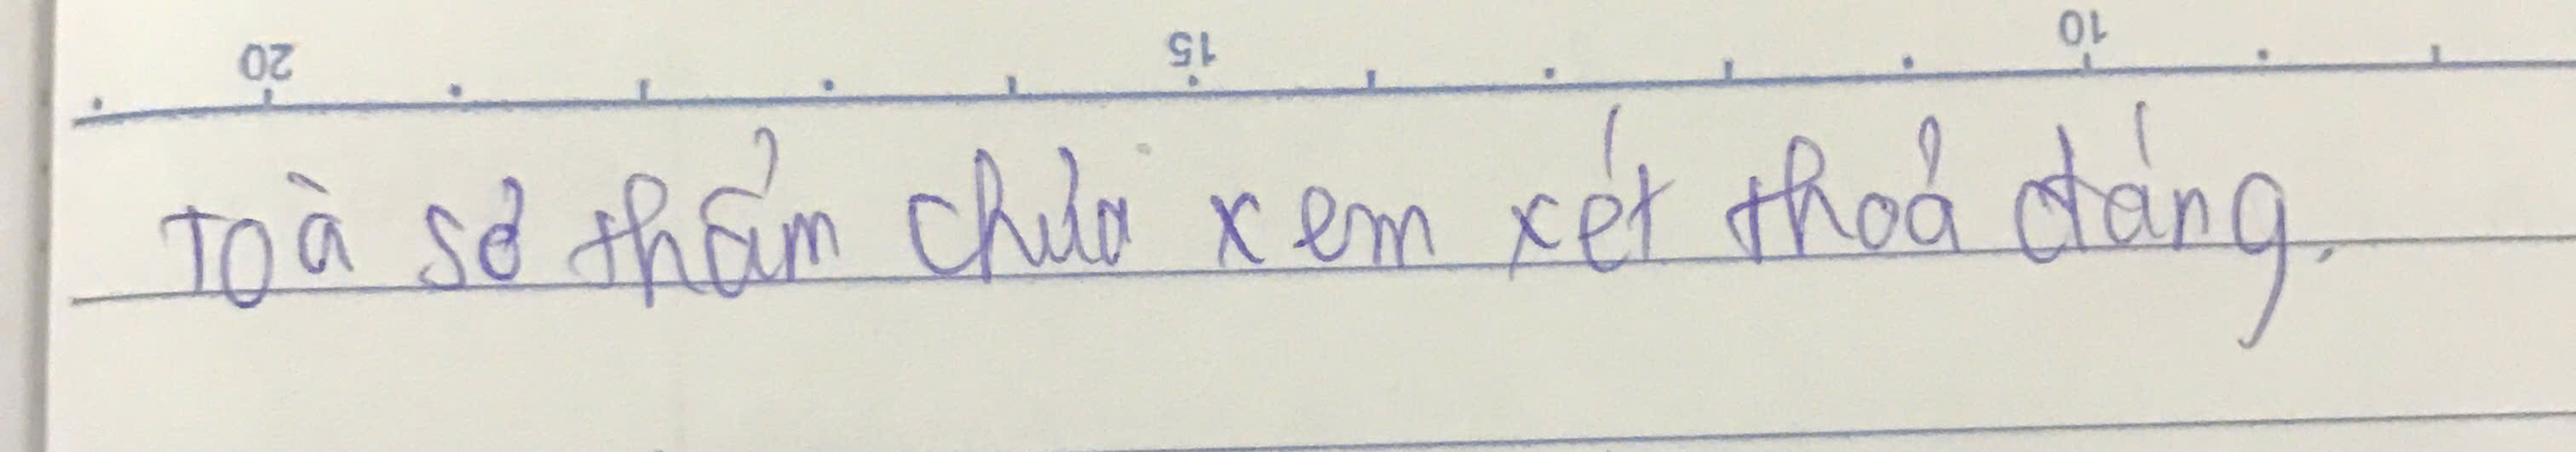 20 15 10
Toà sơ thẩm chưa xem xét thoả đáng.